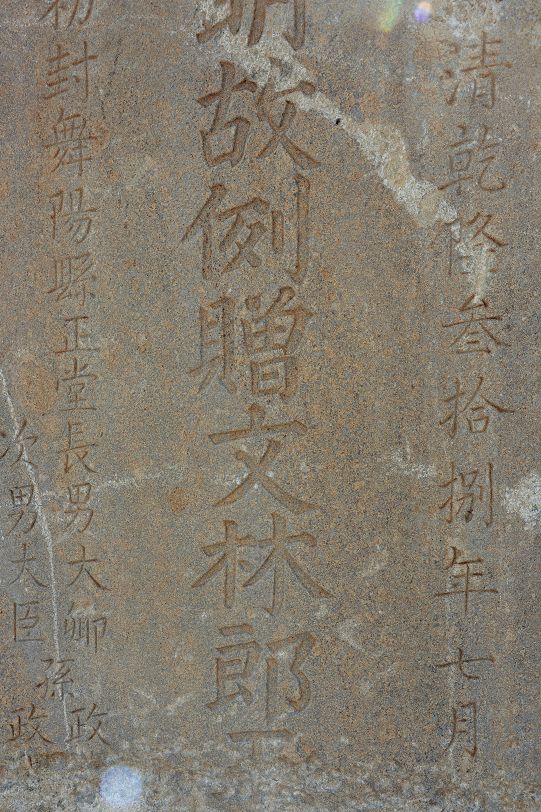 清乾隆叁拾捌年七月
明故例贈文林郎
初封舞陽縣正堂長男大卿
次男大臣
孫政
政